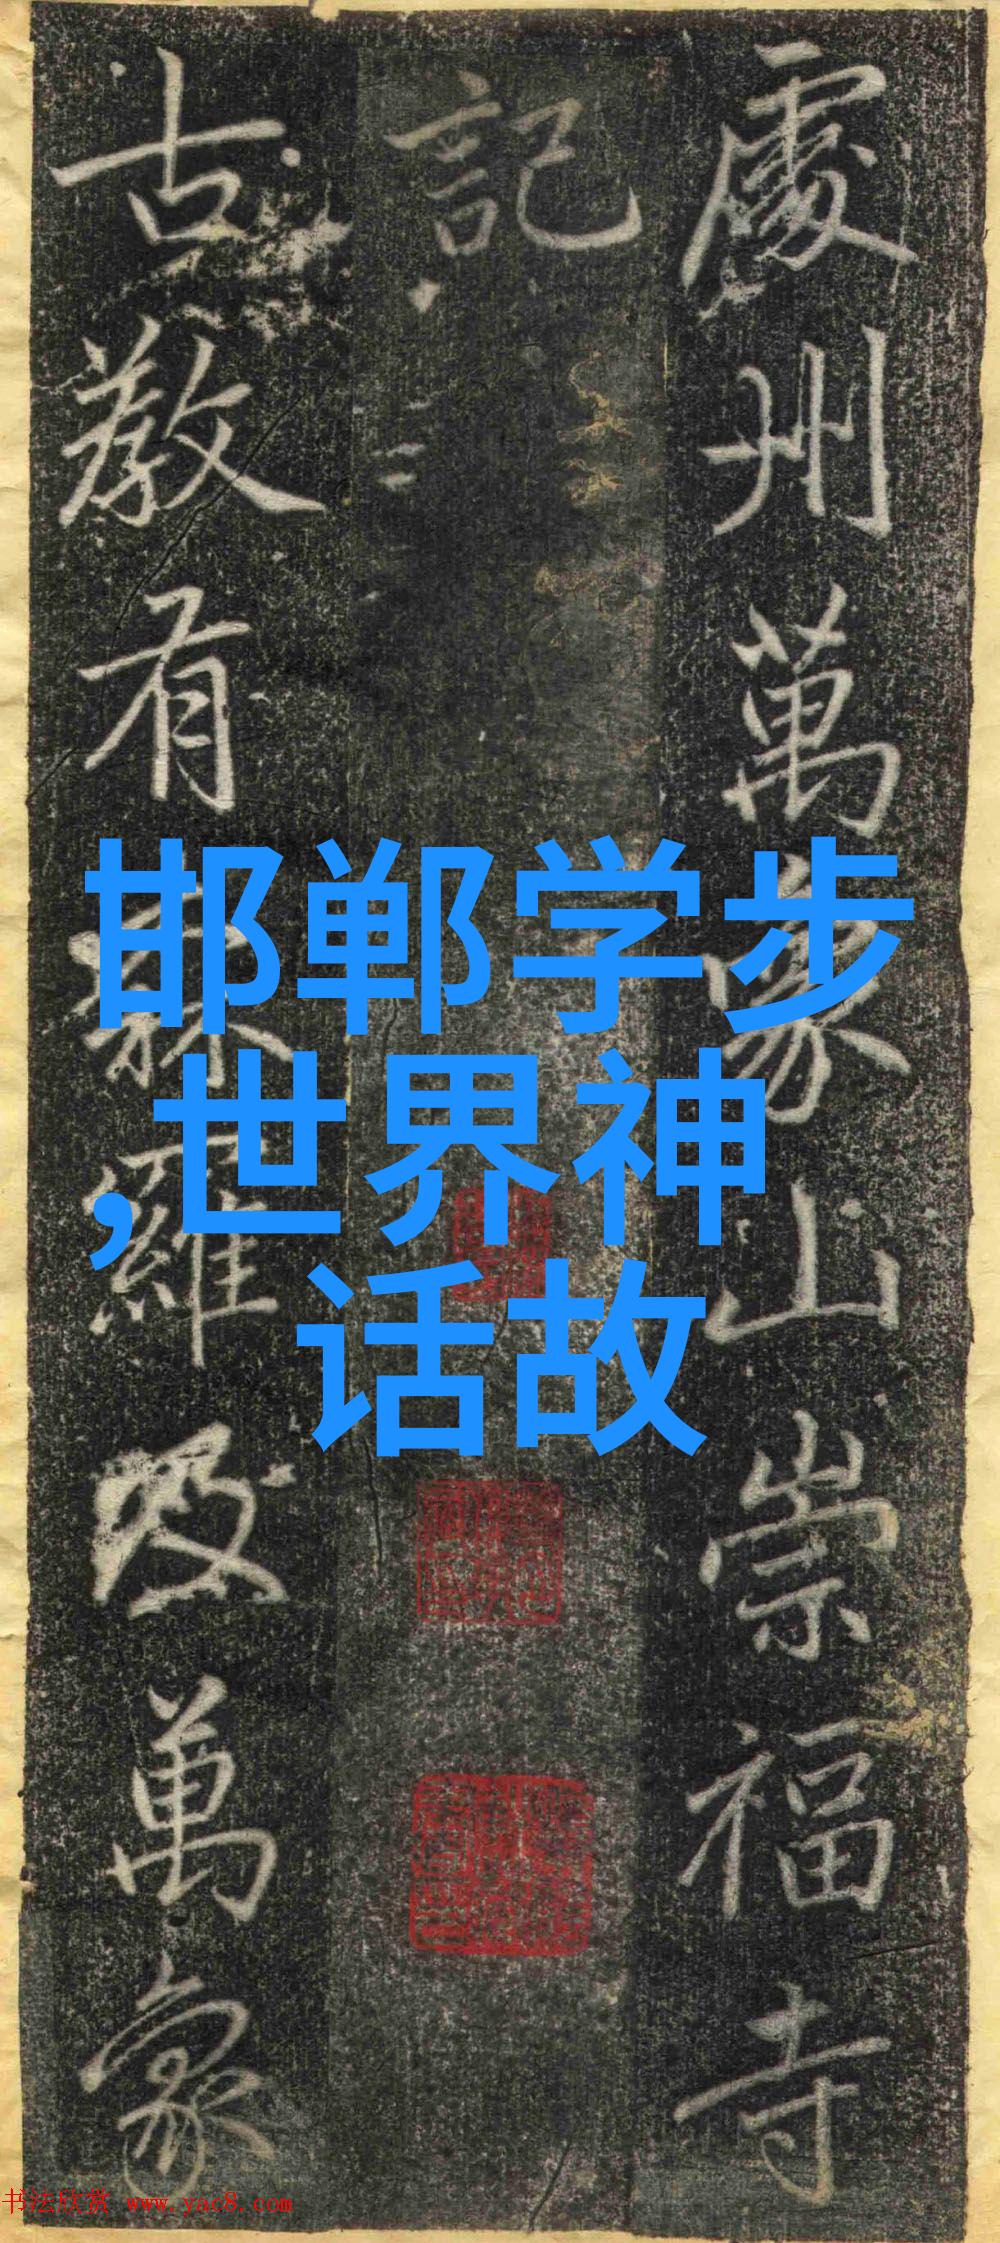 處州萬象山崇福寺
記
古教有森羅及萬象
邯郸学步
,世界神
话故
书法欣赏 www.yac8.com